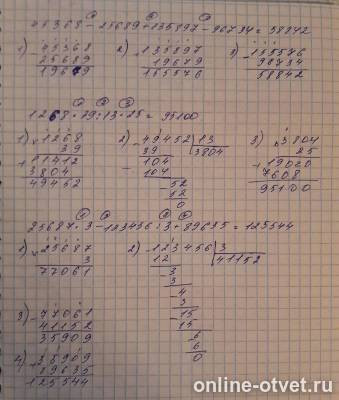 45368-25689+135897-96734=58842
1) 45368 2) 135897 3) 155576
25689 19679 96734
19679 155576 58842
1268·39:13·25=95100
1) 1268 2) 49452 13 3) 3804
39 39 3804 25
11412 104 19020
3804 104 7608
49452 52 95100
52
0
25687·3-123456:3+89635=125544
1) 25687 2) 123456 3
3 12 41152
77061 3
3
4
3
15
3) 77061 15
41152 6
35909 6
4) 35909 0
89635
125544
online-otvet.ru